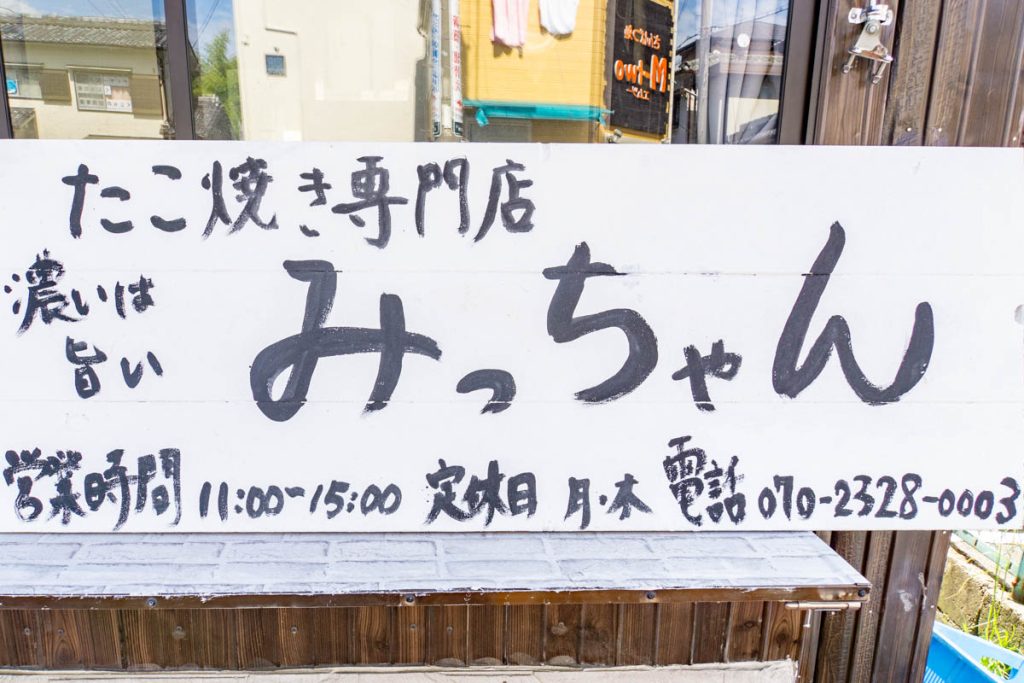 たこ焼き専門店
濃いは
旨い
みっちゃん
営業時間 11:00~15:00 定休日 月・木 電話 070-2328-0003
M-two